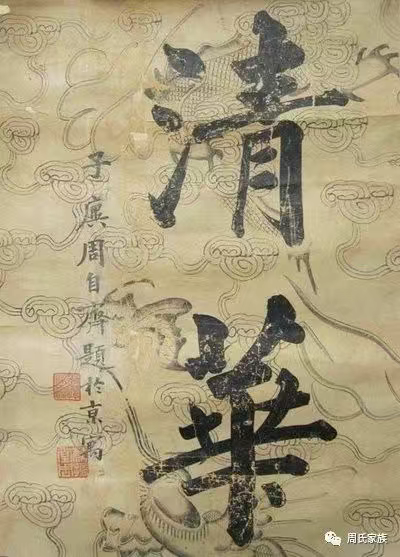 清華
子廙周自齊題於京寓
周氏家族